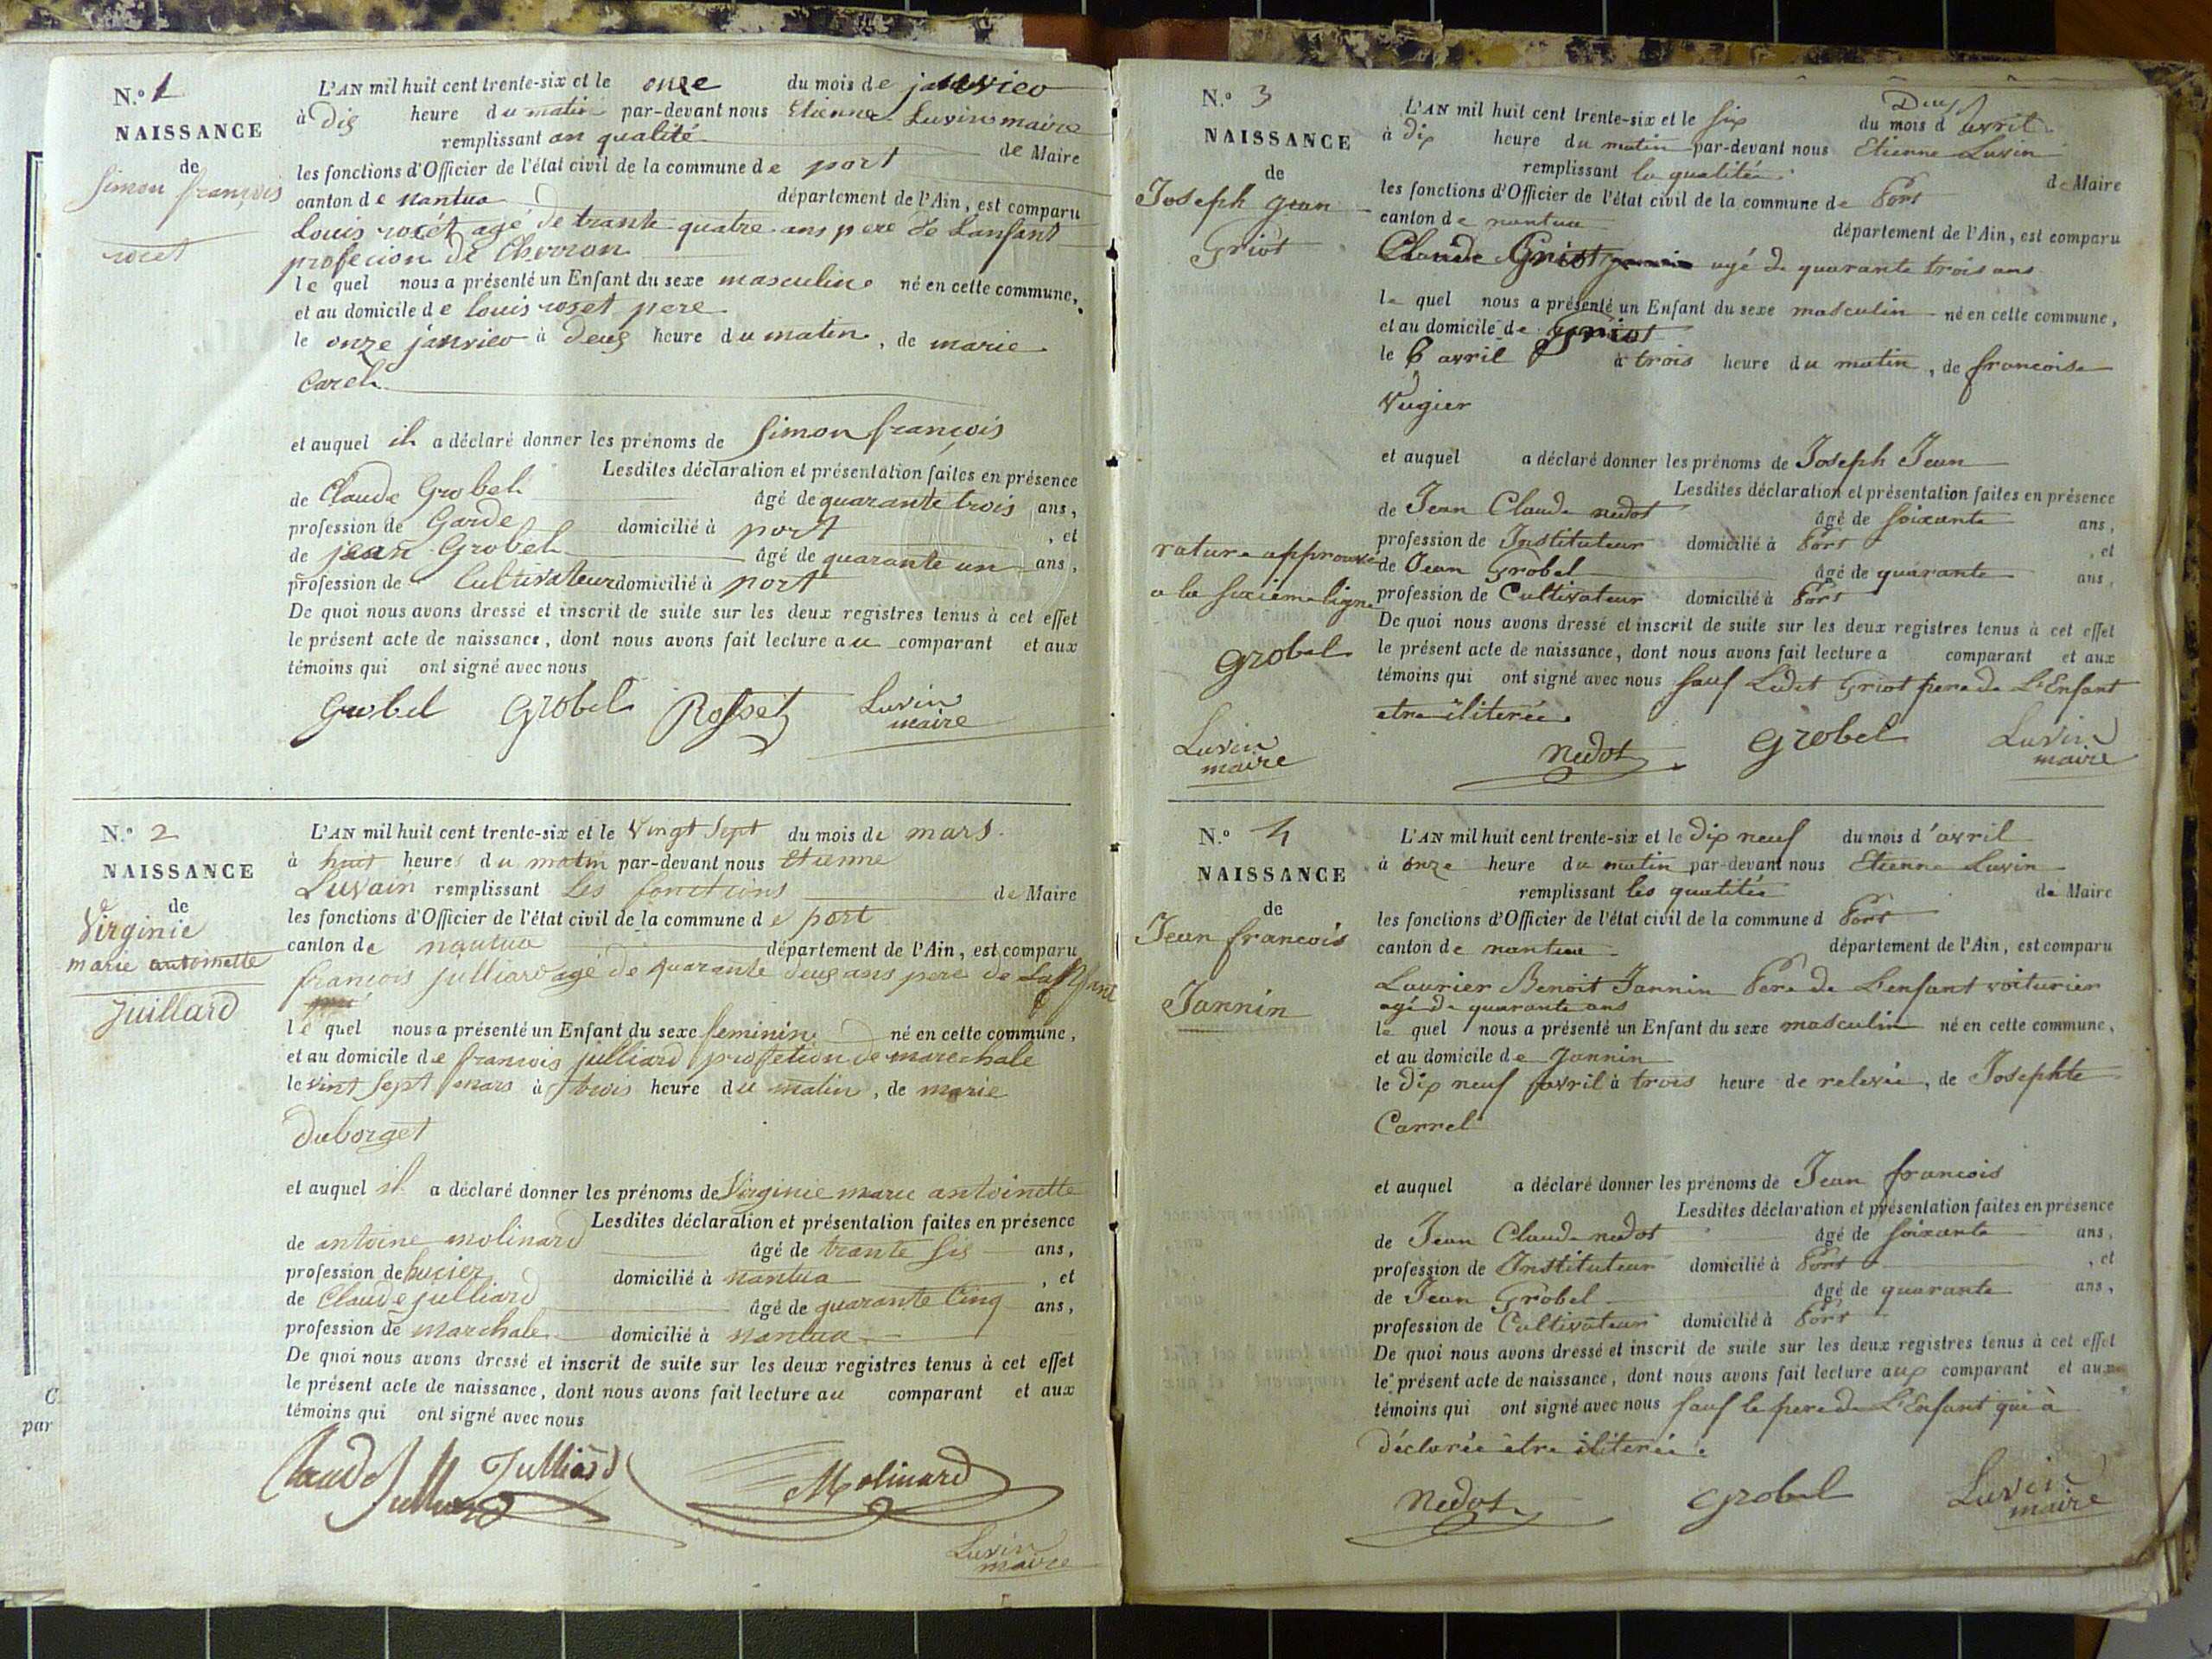 N.° 1
NAISSANCE
de
Simon françois
rocet
L'AN mil huit cent trente-six et le onze du mois de janvier
à dix heure du matin par-devant nous Etienne Luvin maire
remplissant an qualité de Maire
les fonctions d'Officier de l'état civil de la commune de port
canton de nantua département de l'Ain, est comparu
Louis rocet agé de trante quatre ans pere de Lanfant
profecion de Charron
le quel nous a présenté un Enfant du sexe masculin né en cette commune,
et au domicile de louis roset pere
le onze janvier à deus heure du matin, de marie
Carel
et auquel il a déclaré donner les prénoms de Simon françois
Lesdites déclaration et présentation faites en présence
de Claude Grobel âgé de quarante trois ans,
profession de Garde domicilié à port, et
de jean Grobel âgé de quarante un ans,
profession de Cultivateur domicilié à port
De quoi nous avons dressé et inscrit de suite sur les deux registres tenus à cet effet
le présent acte de naissance, dont nous avons fait lecture au comparant et aux
témoins qui ont signé avec nous
Grobel Grobel Rosset Luvin
maire
N.° 2
NAISSANCE
de
Virginie
marie antoinette
Juillard
L'AN mil huit cent trente-six et le Vingt Sept du mois de mars
à huit heures du matin par-devant nous Etienne
Luvain remplissant Les fonctions de Maire
les fonctions d'Officier de l'état civil de la commune de port
canton de nantua département de l'Ain, est comparu
françois julliard agé de quarante deus ans pere de Lanfant
le quel nous a présenté un Enfant du sexe feminin né en cette commune,
et au domicile de francois julliard profetion de marechale
le vint Sept mars à trois heure du matin, de marie
Duborget
et auquel il a déclaré donner les prénoms de Virginie marie antoinette
Lesdites déclaration et présentation faites en présence
de antoine molinard âgé de trante sis ans,
profession de hucier domicilié à nantua, et
de Claude julliard âgé de quarante Cinq ans,
profession de marchale domicilié à nantua
De quoi nous avons dressé et inscrit de suite sur les deux registres tenus à cet effet
le présent acte de naissance, dont nous avons fait lecture au comparant et aux
témoins qui ont signé avec nous
Claude Julliard Julliard Molinard
Luvin
maire
N.° 3
NAISSANCE
de
Joseph jean
Griot
rature approuvé
a la sixieme ligne
Grobel
Luvin
maire
L'AN mil huit cent trente-six et le six du mois d'avril
à dix heure du matin par-devant nous Etienne Luvin
remplissant la qualitée de Maire
les fonctions d'Officier de l'état civil de la commune de Port
canton de nantua département de l'Ain, est comparu
Claude Griot agé de quarante trois ans
le quel nous a présenté un Enfant du sexe masculin né en cette commune,
et au domicile de Griot
le 6 avril à trois heure du matin, de francoise
Vugier
et auquel a déclaré donner les prénoms de Joseph Jean
Lesdites déclaration et présentation faites en présence
de Jean Claude nedot âgé de soixante ans,
profession de Instituteur domicilié à Port, et
de Jean Grobel âgé de quarante ans,
profession de Cultivateur domicilié à Port
De quoi nous avons dressé et inscrit de suite sur les deux registres tenus à cet effet
le présent acte de naissance, dont nous avons fait lecture a comparant et aux
témoins qui ont signé avec nous sauf Ledit Griot pere de L'Enfant
etre iliterée.
Nedot Grobel Luvin
maire
N.° 4
NAISSANCE
de
Jean francois
Jannin
L'AN mil huit cent trente-six et le dix neuf du mois d'avril
à onze heure du matin par-devant nous Etienne Luvin
remplissant les qualitée de Maire
les fonctions d'Officier de l'état civil de la commune d Port
canton de nantua département de l'Ain, est comparu
Laurier Benoit Jannin Pere de L'enfant voiturier
agé de quarante ans
le quel nous a présenté un Enfant du sexe masculin né en cette commune,
et au domicile de Jannin
le dix neuf avril à trois heure de relevée, de Josephte
Carrel
et auquel a déclaré donner les prénoms de Jean francois
Lesdites déclaration et présentation faites en présence
de Jean Claude nedot âgé de soixante ans,
profession de Instituteur domicilié à Port, et
de Jean Grobel âgé de quarante ans,
profession de Cultivateur domicilié à Port
De quoi nous avons dressé et inscrit de suite sur les deux registres tenus à cet effet
le présent acte de naissance, dont nous avons fait lecture aux comparant et aux
témoins qui ont signé avec nous sauf le pere de L'Enfant qui à
déclarée être iliterée.
Nedot Grobel Luvin
maire
par